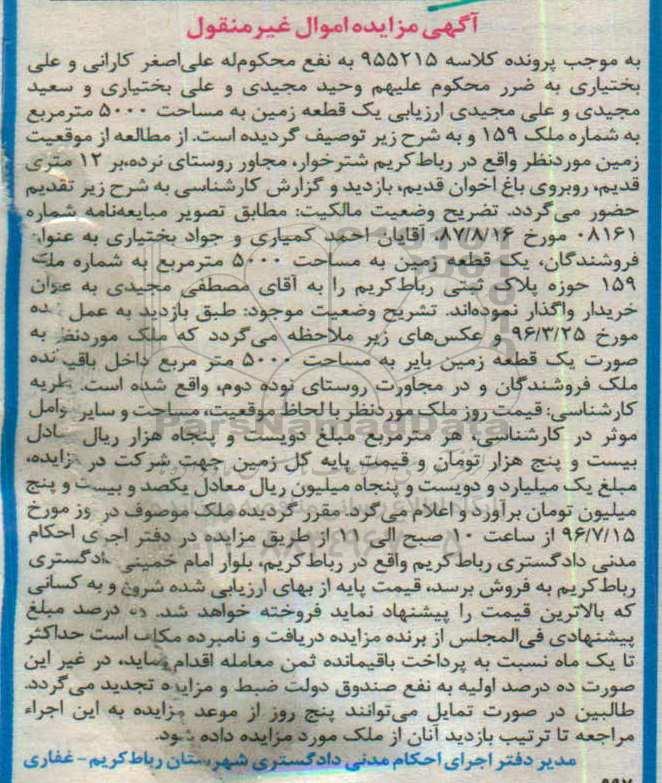 آگهی مزایده اموال غیر منقول
به موجب پرونده کلاسه ۹۵۵۲۱۵ به نفع محکوم‌له علی‌اصغر کارانی و علی
بختیاری به ضرر محکوم علیهم وحید مجیدی و علی بختیاری و سعید
مجیدی و علی مجیدی ارزیابی یک قطعه زمین به مساحت ۵۰۰۰ مترمربع
به شماره ملک ۱۵۹ و به شرح زیر توصیف گردیده است. از مطالعه از موقعیت
زمین موردنظر واقع در رباط‌کریم شترخوار، مجاور روستای نرده،بر ۱۲ متری
قدیم، روبروی باغ اخوان قدیم، بازدید و گزارش کارشناسی به شرح زیر تقدیم
حضور می‌گردد. تضریح وضعیت مالکیت: مطابق تصویر مبایعه‌نامه شماره
۰۸۱۶۱ مورخ ۸۷/۸/۱۶، آقایان احمد کمیاری و جواد بختیاری به عنوان
فروشندگان، یک قطعه زمین به مساحت ۵۰۰۰ مترمربع به شماره ملک
۱۵۹ حوزه پلاک ثبتی رباط‌کریم را به آقای مصطفی مجیدی به عنوان
خریدار واگذار نموده‌اند. تشریح وضعیت موجود: طبق بازدید به عمل ده
مورخ ۹۶/۳/۲۵ و عکس‌های زیر ملاحظه می‌گردد که ملک موردنظر به
صورت یک قطعه زمین بایر به مساحت ۵۰۰۰ متر مربع داخل باقیمانده
ملک فروشندگان و در مجاورت روستای نوده دوم، واقع شده است. نظریه
کارشناسی: قیمت روز ملک موردنظر با لحاظ موقعیت، مساحت و سایر عوامل
موثر در کارشناسی، هر مترمربع مبلغ دویست و پنجاه هزار ریال معادل
بیست و پنج هزار تومان و قیمت پایه کل زمین جهت شرکت در مزایده،
مبلغ یک میلیارد و دویست و پنجاه میلیون ریال معادل یکصد و بیست و پنج
میلیون تومان برآورد و اعلام می‌گردد. مقرر گردیده ملک موصوف در روز مورخ
۹۶/۷/۱۵ از ساعت ۱۰ صبح الی ۱۱ از طریق مزایده در دفتر اجرای احکام
مدنی دادگستری رباط‌کریم واقع در رباط‌کریم، بلوار امام خمینی دادگستری
رباط‌کریم به فروش برسد، قیمت پایه از بهای ارزیابی شده شروع و به کسانی
که بالاترین قیمت را پیشنهاد نماید فروخته خواهد شد. ده درصد مبلغ
پیشنهادی فی‌المجلس از برنده مزایده دریافت و نامبرده مکلف است حداکثر
تا یک ماه نسبت به پرداخت باقیمانده ثمن معامله اقدام نماید، در غیر این
صورت ده درصد اولیه به نفع صندوق دولت ضبط و مزایده تجدید می‌گردد.
طالبین در صورت تمایل می‌توانند پنج روز از موعد مزایده به این اجراء
مراجعه تا ترتیب بازدید آنان از ملک مورد مزایده داده شود.
مدیر دفتر اجرای احکام مدنی دادگستری شهرستان رباط‌کریم - غفاری
ParsNamadData